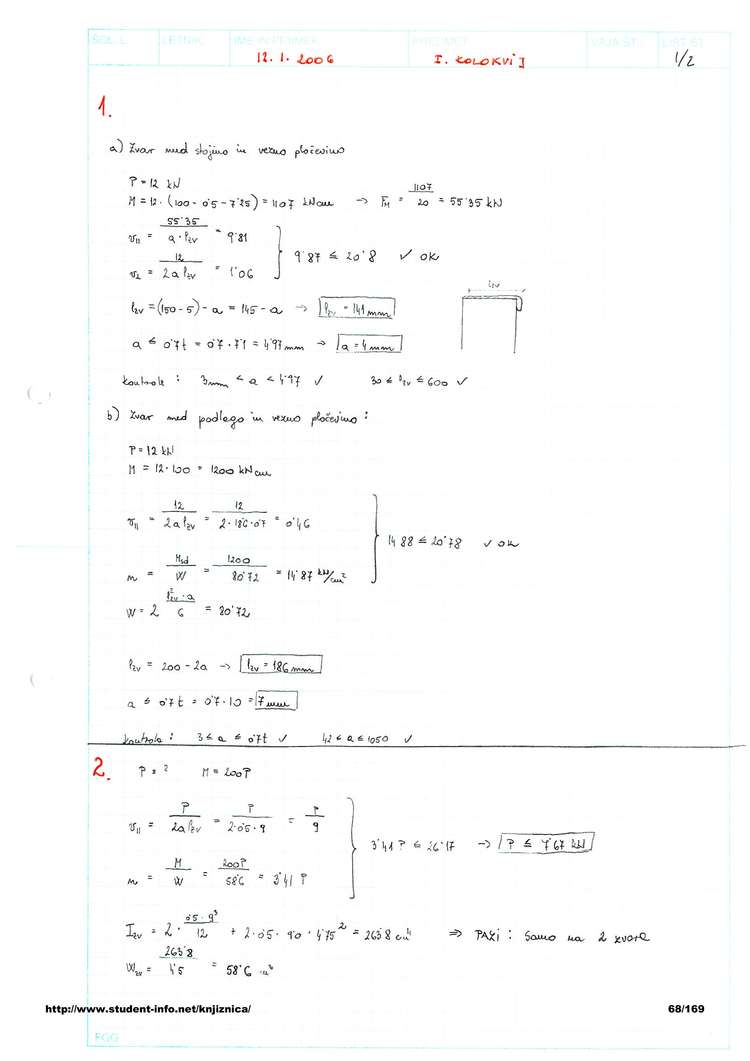 ŠOL. L. LETNIK IME IN PRIIMEK PREDMET VAJA ŠT. LIST ŠT.
12. 1. 2006 I. KOLOKVIJ 1/2
1.
a) Zvar med stojino in vezno pločevino
P = 12 kN
M = 12 · (100 - 0'5 - 7'25) = 1107 kNcm → F_M = 1107/20 = 55'35 kN
v_II = 55'35/(a · l_zv) = 9'81
v_⊥ = 12/(2a l_zv) = 1'06
9'87 ≤ 20'8 ✓ OK
l_zv = (150 - 5) - a = 145 - a → l_zv = 141 mm
l_zv
a ≤ 0'7t = 0'7 · 7'1 = 4'97 mm → a = 4 mm
kontrole : 3mm < a < 4'97 ✓ 30 ≤ l_zv ≤ 600 ✓
b) Zvar med podlago in vezno pločevino :
P = 12 kN
M = 12 · 100 = 1200 kNcm
v_II = 12/(2a l_zv) = 12/(2 · 18'6 · 0'7) = 0'46
14'88 ≤ 20'78 ✓ OK
n = M_sd/W = 1200/80'72 = 14'87 kN/cm²
W = 2 l_zv² · a/6 = 80'72
l_zv = 200 - 2a → l_zv = 186 mm
a ≤ 0'7t = 0'7 · 10 = 7 mm
kontrole : 3 ≤ a ≤ 0'7t ✓ 42 ≤ a ≤ 1050 ✓
2. P = ? M = 200P
v_II = P/(2a l_zv) = P/(2 · 0'5 · 9) = P/9
3'41 P ≤ 26'17 → P ≤ 7'67 kN
n = M/W = 200P/58'6 = 3'41 P
I_zv = 2 · 0'5 · 9³/12 + 2 · 0'5 · 9'0 · 4'75² = 263'8 cm⁴ ⇒ PAZI : Samo na 2 zvara
W_zv = 263'8/4'5 = 58'6 cm³
http://www.student-info.net/knjiznica/ 68/169
FGG